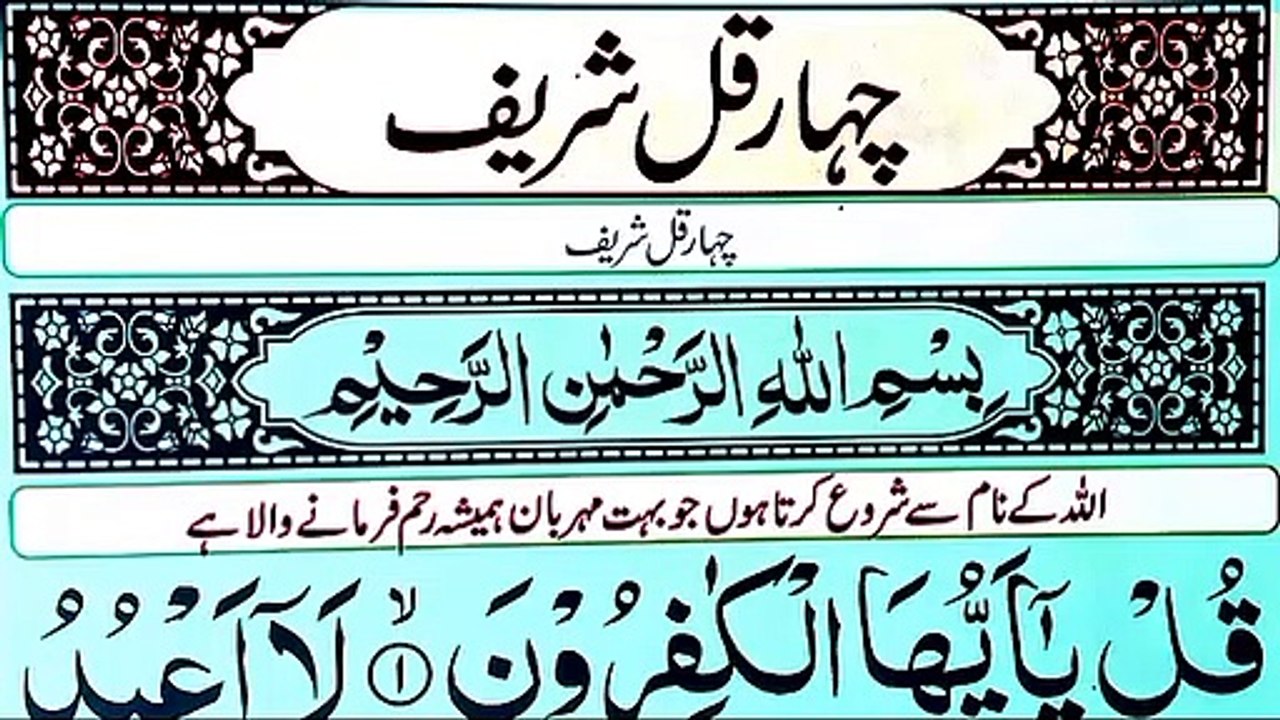 چہار قل شریف
چہار قل شریف
بِسْمِ اللهِ الرَّحْمٰنِ الرَّحِيْمِ
اللہ کے نام سے شروع کرتا ہوں جو بہت مہربان ہمیشہ رحم فرمانے والا ہے
قُلْ يٰٓاَيُّهَا الْكٰفِرُوْنَ ۙ﴿۱﴾ لَآ اَعْبُدُ